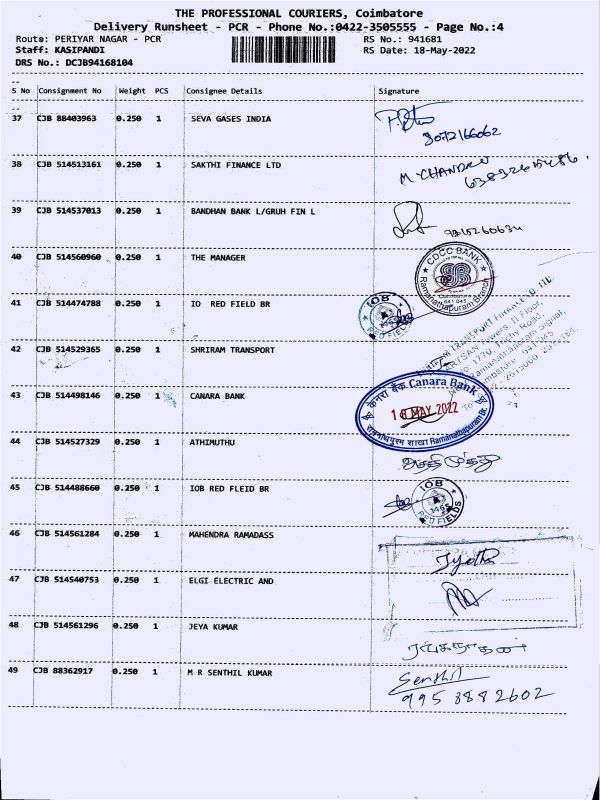 THE PROFESSIONAL COURIERS, Coimbatore
Delivery Runsheet - PCR - Phone No.:0422-3505555 - Page No.:4
Route: PERIYAR NAGAR - PCR RS No.: 941681
Staff: KASIPANDI RS Date: 18-May-2022
DRS No.: DCJB94168104
S No Consignment No Weight PCS Consignee Details Signature
37 CJB 88403963 0.250 1 SEVA GASES INDIA
8072166062
38 CJB 514513161 0.250 1 SAKTHI FINANCE LTD M CHANDRU
39 CJB 514537013 0.250 1 BANDHAN BANK L/GRUH FIN L
40 CJB 514560960 0.250 1 THE MANAGER
CDCC BANK
Ramanathapuram Branch
41 CJB 514474788 0.250 1 IO RED FIELD BR
IOB
RED FIELDS
42 CJB 514529365 0.250 1 SHRIRAM TRANSPORT
43 CJB 514498146 0.250 1 CANARA BANK
केनरा बैंक Canara Bank
18 MAY 2022
रामनाथपुरम शाखा Ramanathapuram Br.
44 CJB 514527329 0.250 1 ATHIMUTHU
45 CJB 514488660 0.250 1 IOB RED FLEID BR
IOB
RED FIELDS
46 CJB 514561284 0.250 1 MAHENDRA RAMADASS
Jyothi
47 CJB 514540753 0.250 1 ELGI ELECTRIC AND
48 CJB 514561296 0.250 1 JEYA KUMAR
ரங்கநாதன்
49 CJB 88362917 0.250 1 M R SENTHIL KUMAR Senthil
9958882602